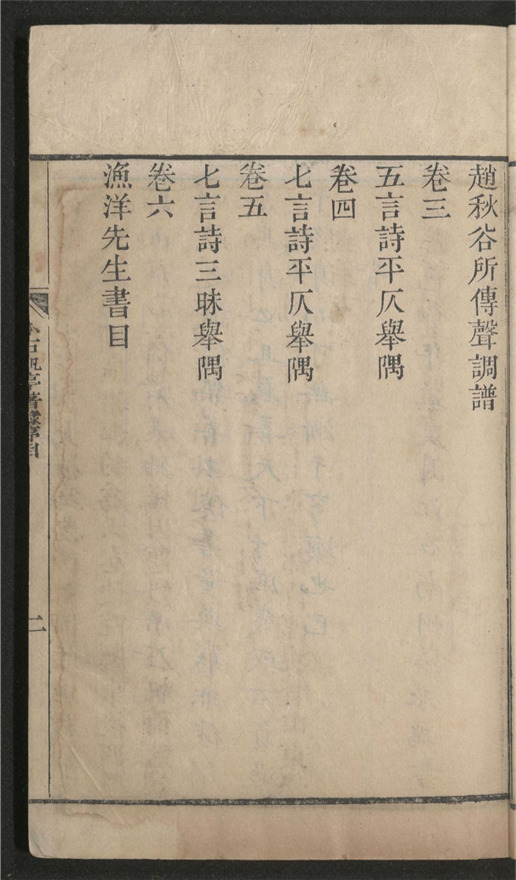 趙秋谷所傳聲調譜
卷三
五言詩平仄舉隅
卷四
七言詩平仄舉隅
卷五
七言詩三昧舉隅
卷六
漁洋先生書目
石帆亭著錄序目
二